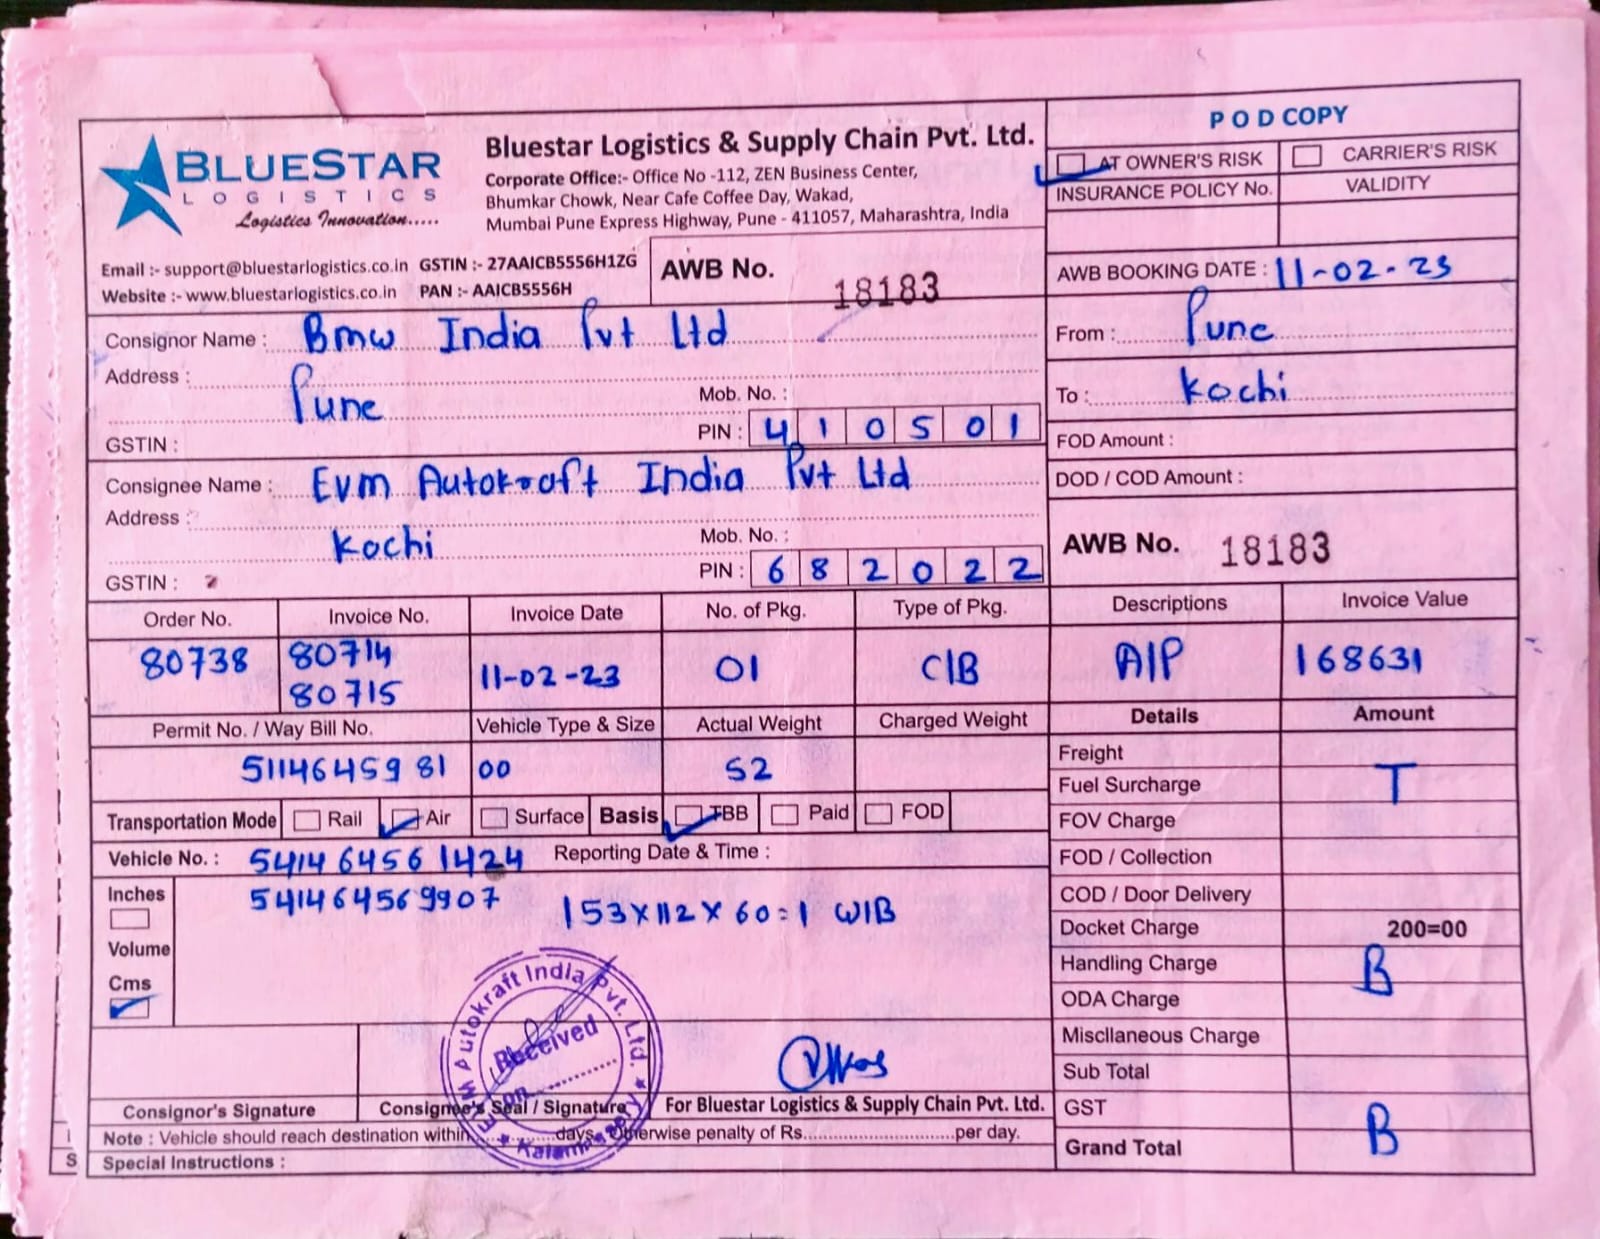 POD COPY
BLUESTAR
LOGISTICS
Logistics Innovation.....
Bluestar Logistics & Supply Chain Pvt. Ltd.
Corporate Office:- Office No -112, ZEN Business Center,
Bhumkar Chowk, Near Cafe Coffee Day, Wakad,
Mumbai Pune Express Highway, Pune - 411057, Maharashtra, India
AT OWNER'S RISK CARRIER'S RISK
INSURANCE POLICY No. VALIDITY
Email :- support@bluestarlogistics.co.in GSTIN :- 27AAICB5556H1ZG
Website :- www.bluestarlogistics.co.in PAN :- AAICB5556H
AWB No. 18183
AWB BOOKING DATE : 11-02-23
Consignor Name : Bmw India Pvt Ltd
Address : Pune
Mob. No. :
GSTIN : PIN : 410501
From : Pune
To : Kochi
FOD Amount :
Consignee Name : Evm Autokraft India Pvt Ltd
Address : Kochi
Mob. No. :
GSTIN : PIN : 682022
DOD / COD Amount :
AWB No. 18183
Order No. Invoice No. Invoice Date No. of Pkg. Type of Pkg. Descriptions Invoice Value
80738 80714 11-02-23 01 C/B A/P 168631
80715
Permit No. / Way Bill No. Vehicle Type & Size Actual Weight Charged Weight Details Amount
511464545981 00 52
Freight
Fuel Surcharge T
Transportation Mode Rail Air Surface Basis TBB Paid FOD
FOV Charge
Vehicle No. : 541464561424 Reporting Date & Time :
541464569907 153x112x60=1 W/B
Inches
Volume
Cms
FOD / Collection
COD / Door Delivery
Docket Charge 200=00
Handling Charge B
ODA Charge
Miscllaneous Charge
Sub Total
GST
Grand Total B
EVM Autokraft India Pvt. Ltd.
Received
on
Kalamassery
Consignor's Signature Consignee's Seal / Signature For Bluestar Logistics & Supply Chain Pvt. Ltd.
Note : Vehicle should reach destination within............days, Otherwise penalty of Rs............................per day.
Special Instructions :